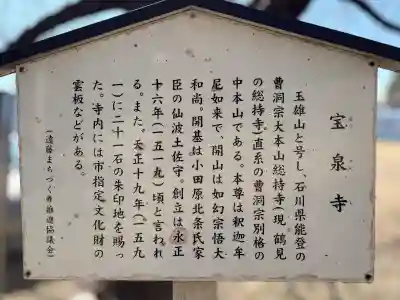 宝泉寺
玉雄山と号し、石川県能登の
曹洞宗大本山総持寺(現、鶴見
の総持寺)直系の曹洞宗別格の
中本山である。本尊は釈迦牟
尼如来で、開山は如幻宗悟大
和尚。開基は小田原北条氏家
臣の仙波土佐守。創立は永正
十六年(一五一九)頃と言われ
る。また、天正十九年(一五九
一)に二十一石の朱印地を賜っ
た。寺内には市指定文化財の
雲板などがある。
(遠藤まちづくり推進協議会)